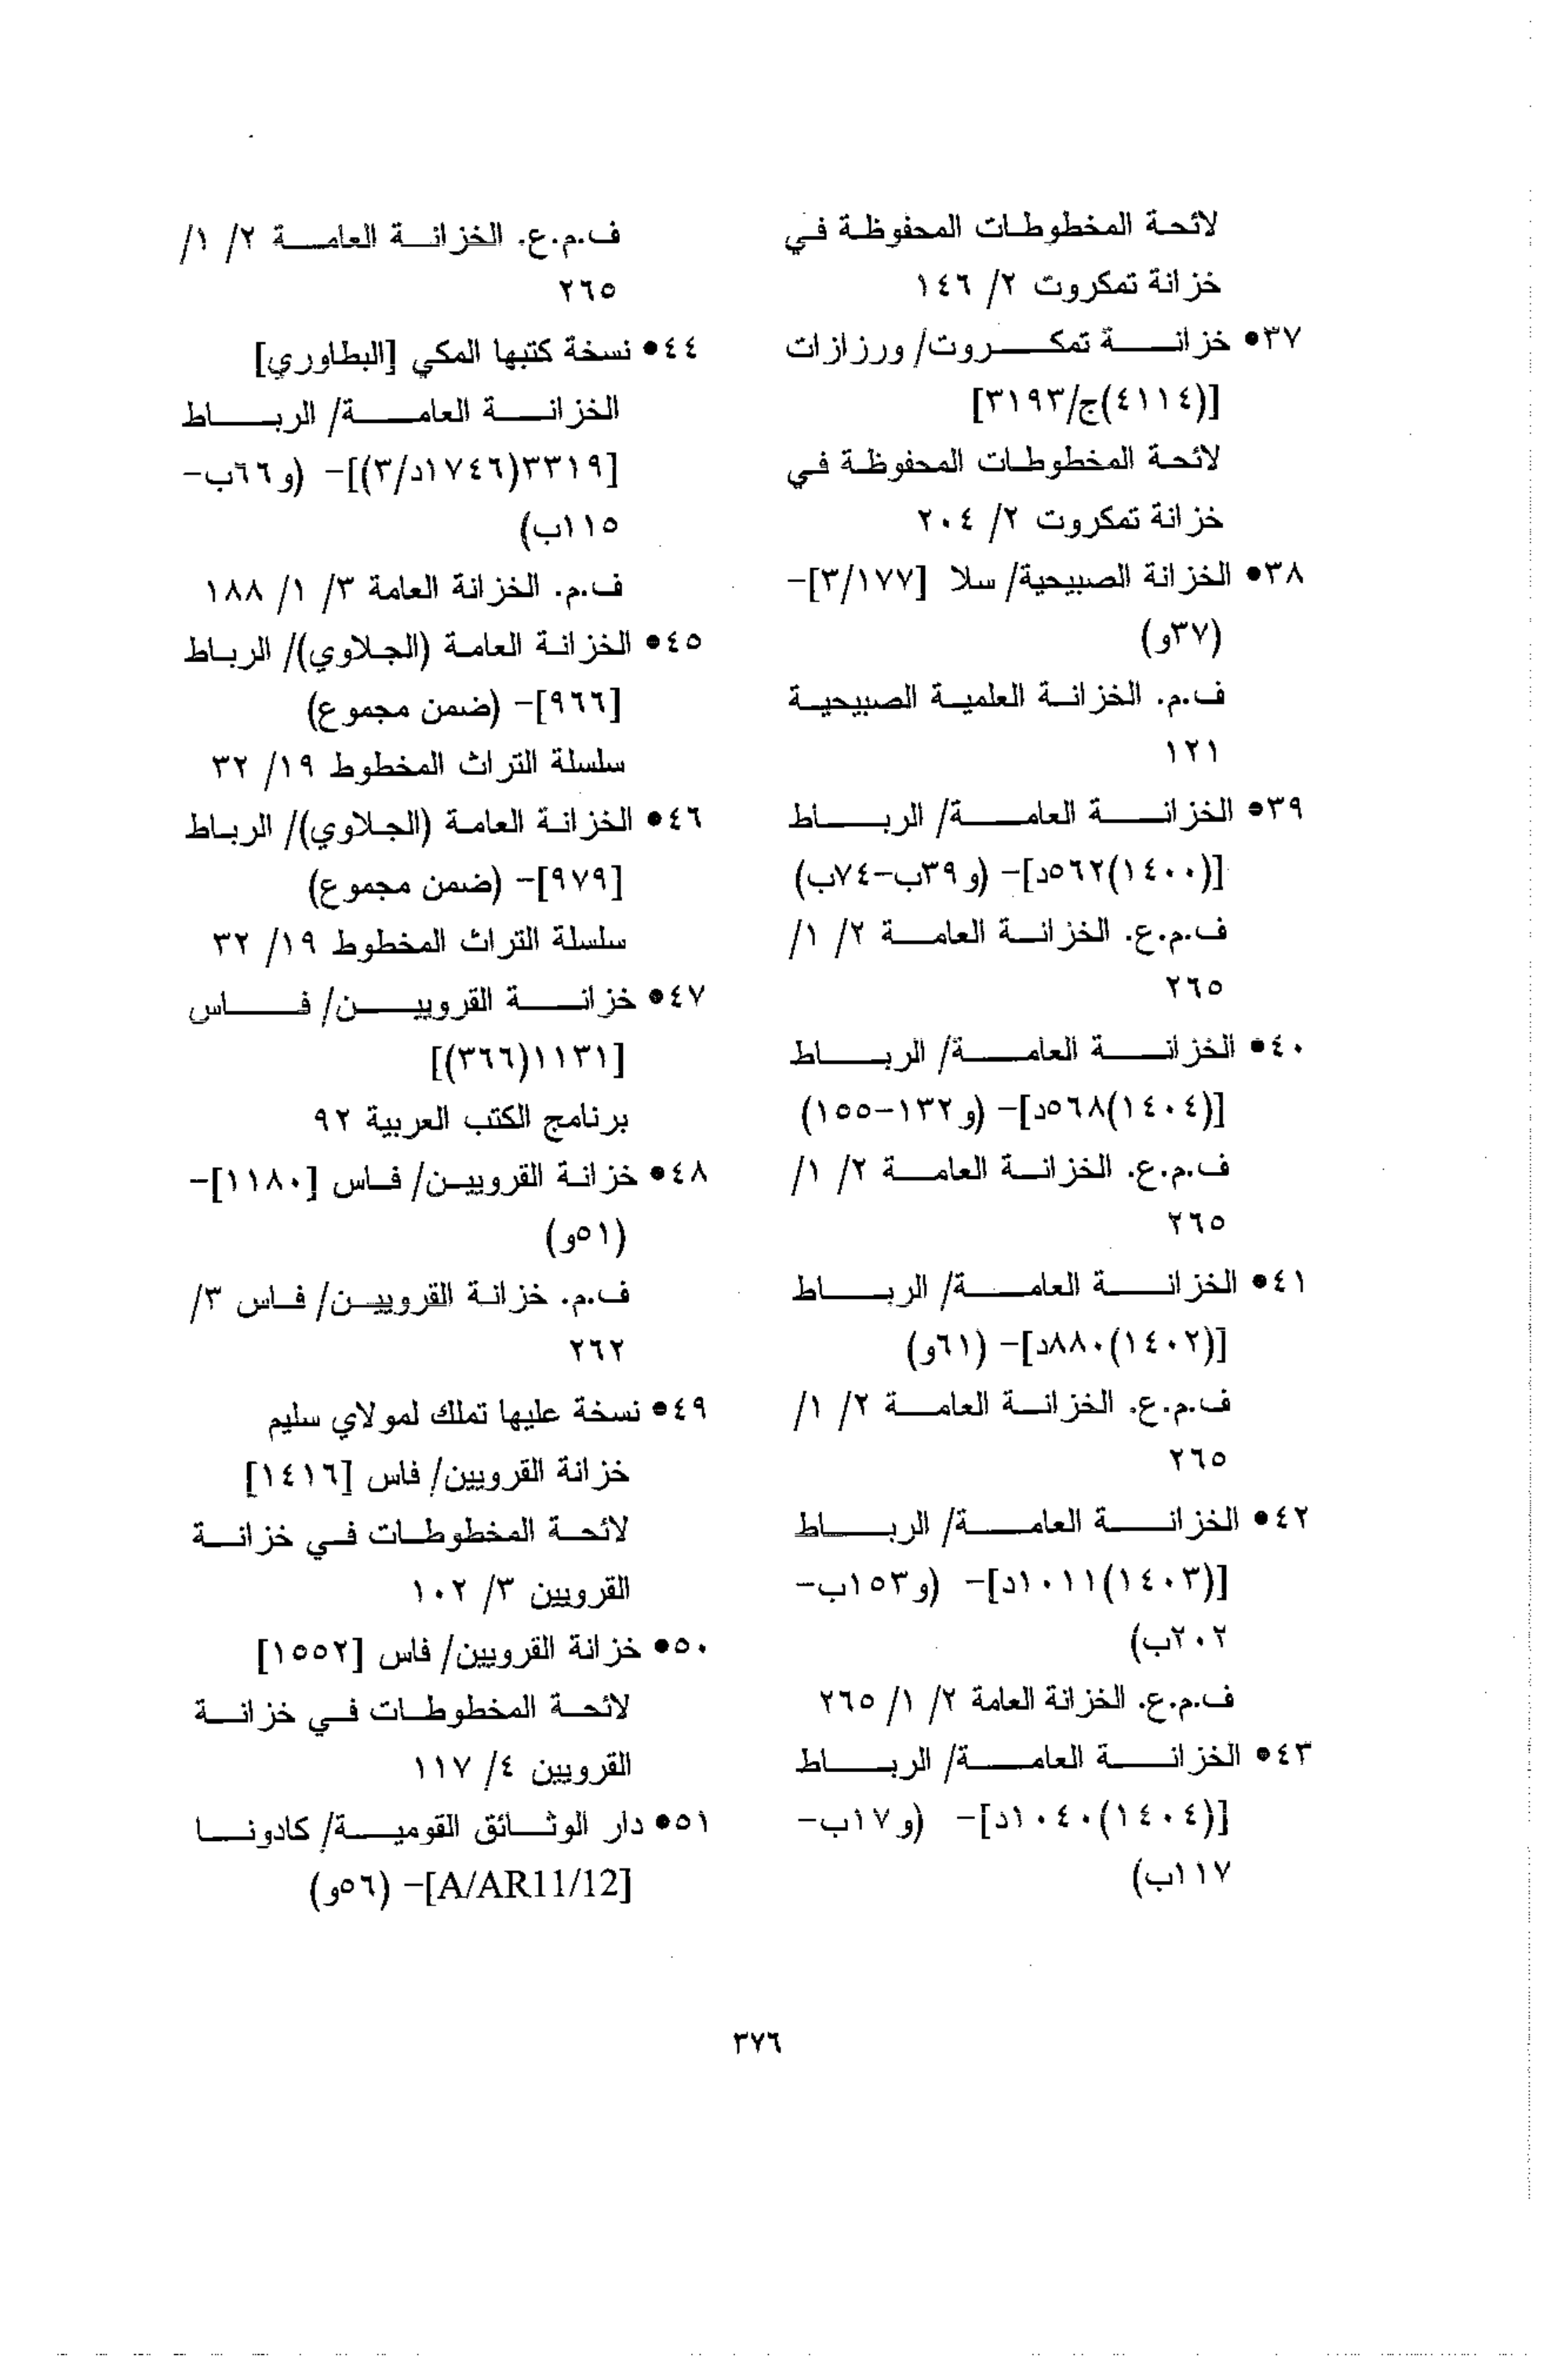 لائحة المخطوطات المحفوظة في
خزانة تمكروت ٢/ ١٤٦
٣٧• خزانة تمكروت/ ورزازات
[(٤١١٤)ج/٣١٩٣]
لائحة المخطوطات المحفوظة في
خزانة تمكروت ٢/ ٢٠٤
٣٨• الخزانة الصبيحية/ سلا [٣/١٧٧]-
(٣٧و)
ف.م. الخزانة العلمية الصبيحية
١٢١
٣٩• الخزانة العامة/ الرباط
[(١٤٠٠)٥٦٢د]- (و٣٩ب-٧٤ب)
ف.م.ع. الخزانة العامة ٢/ ١/
٢٦٥
٤٠• الخزانة العامة/ الرباط
[(١٤٠٤)٥٦٨د]- (و١٣٢-١٥٥)
ف.م.ع. الخزانة العامة ٢/ ١/
٢٦٥
٤١• الخزانة العامة/ الرباط
[(١٤٠٢)٨٨٠د]- (٦١و)
ف.م.ع. الخزانة العامة ٢/ ١/
٢٦٥
٤٢• الخزانة العامة/ الرباط
[(١٤٠٣)١٠١١د]- (و١٥٣ب-
٢٠٢ب)
ف.م.ع. الخزانة العامة ٢/ ١/ ٢٦٥
٤٣• الخزانة العامة/ الرباط
[(١٤٠٤)١٠٤٠د]- (و١٧ب-
١١٧ب)
ف.م.ع. الخزانة العامة ٢/ ١/
٢٦٥
٤٤• نسخة كتبها المكي [البطاوري]
الخزانة العامة/ الرباط
[٣٣١٩(١٧٤٦د/٣)]- (و٦٦ب-
١١٥ب)
ف.م. الخزانة العامة ٣/ ١/ ١٨٨
٤٥• الخزانة العامة (الجلاوي)/ الرباط
[٩٦٦]- (ضمن مجموع)
سلسلة التراث المخطوط ١٩/ ٣٢
٤٦• الخزانة العامة (الجلاوي)/ الرباط
[٩٧٩]- (ضمن مجموع)
سلسلة التراث المخطوط ١٩/ ٣٢
٤٧• خزانة القرويين/ فاس
[١١٣١(٣٦٦)]
برنامج الكتب العربية ٩٢
٤٨• خزانة القرويين/ فاس [١١٨٠]-
(٥١و)
ف.م. خزانة القرويين/ فاس ٣/
٢٦٢
٤٩• نسخة عليها تملك لمولاي سليم
خزانة القرويين/ فاس [١٤١٦]
لائحة المخطوطات في خزانة
القرويين ٣/ ١٠٢
٥٠• خزانة القرويين/ فاس [١٥٥٢]
لائحة المخطوطات في خزانة
القرويين ٤/ ١١٧
٥١• دار الوثائق القومية/ كادونا
[A/AR11/12]- (٥٦و)
٣٧٦